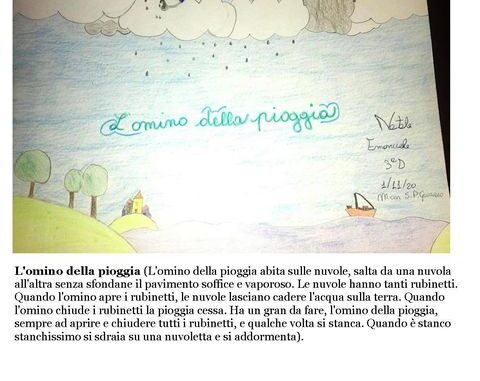 L'omino della pioggia
Natale
Emanuele
3ªD
1/11/20
L'omino della pioggia (L'omino della pioggia abita sulle nuvole, salta da una nuvola
all'altra senza sfondane il pavimento soffice e vaporoso. Le nuvole hanno tanti rubinetti.
Quando l'omino apre i rubinetti, le nuvole lasciano cadere l'acqua sulla terra. Quando
l'omino chiude i rubinetti la pioggia cessa. Ha un gran da fare, l'omino della pioggia,
sempre ad aprire e chiudere tutti i rubinetti, e qualche volta si stanca. Quando è stanco
stanchissimo si sdraia su una nuvoletta e si addormenta).